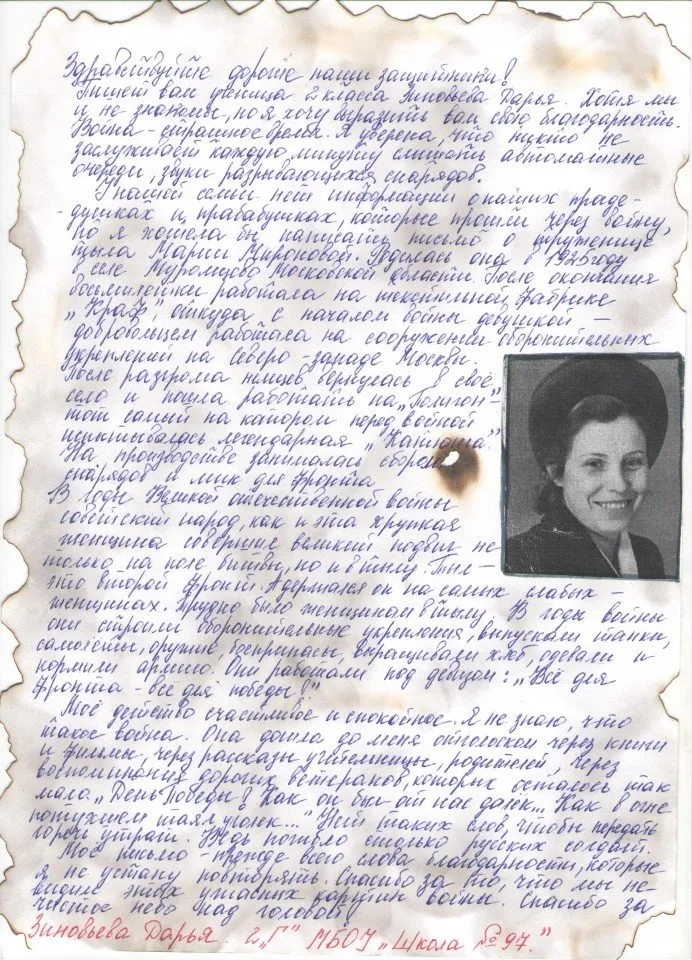 Здравствуйте дорогие наши защитники!
Пишет вам ученица 2 класса Зиновьева Дарья. Хотя мы
и не знакомы, но я хочу выразить вам свою благодарность.
Война - страшное дело. Я уверена, что никто не
заслуживает каждую минуту слышать автоматные
очереди, звуки разрывающихся снарядов.
У нашей семьи нет информации о наших праде-
-душках и прабабушках, которые прошли через войну,
но я хотела бы написать письмо о труженице
тыла Марии Мироновой. Родилась она в 1925 году
в селе Муромцово Московской области. После окончания
восьмилетки работала на текстильной фабрике
„Краф", откуда с началом войны девушкой —
добровольцем работала на сооружении оборонительных
укреплений на Северо-западе Москвы.
После разгрома немцев вернулась в своё
село и пошла работать на „Полигон"
тот самый на котором перед войной
испытывалась легендарная „Катюша."
На производстве занималась сборкой
снарядов и мин для фронта
В годы Великой отечественной войны
советский народ, как и эта хрупкая
женщина совершил великий подвиг не
только на поле битвы, но и в тылу. Тыл -
это второй фронт. А держался он на самых слабых —
женщинах. Трудно было женщинам в тылу. В годы войны
они строили оборонительные укрепления, выпускали танки,
самолёты, оружие, боеприпасы, выращивали хлеб, одевали и
кормили армию. Они работали под девизом: „Всё для
фронта - всё для победы!"
Моё детство счастливое и спокойное. Я не знаю, что
такое война. Она дошла до меня отголоском через книги
и фильмы, через рассказы учительницы, родителей, через
воспоминания дорогих ветеранов, которых осталось так
мало. „День Победы! Как он был от нас далек... Как в огне
потухшем таял уголек..." Нет таких слов, чтобы передать
горечь утрат. Ведь погибло столько русских солдат.
Моё письмо - прежде всего слова благодарности, которые
я не устану повторять. Спасибо за то, что мы не
видим этих ужасных картин войны. Спасибо за
чистое небо над головой!
Зиновьева Дарья. 2„Г" МБОУ „Школа №97."